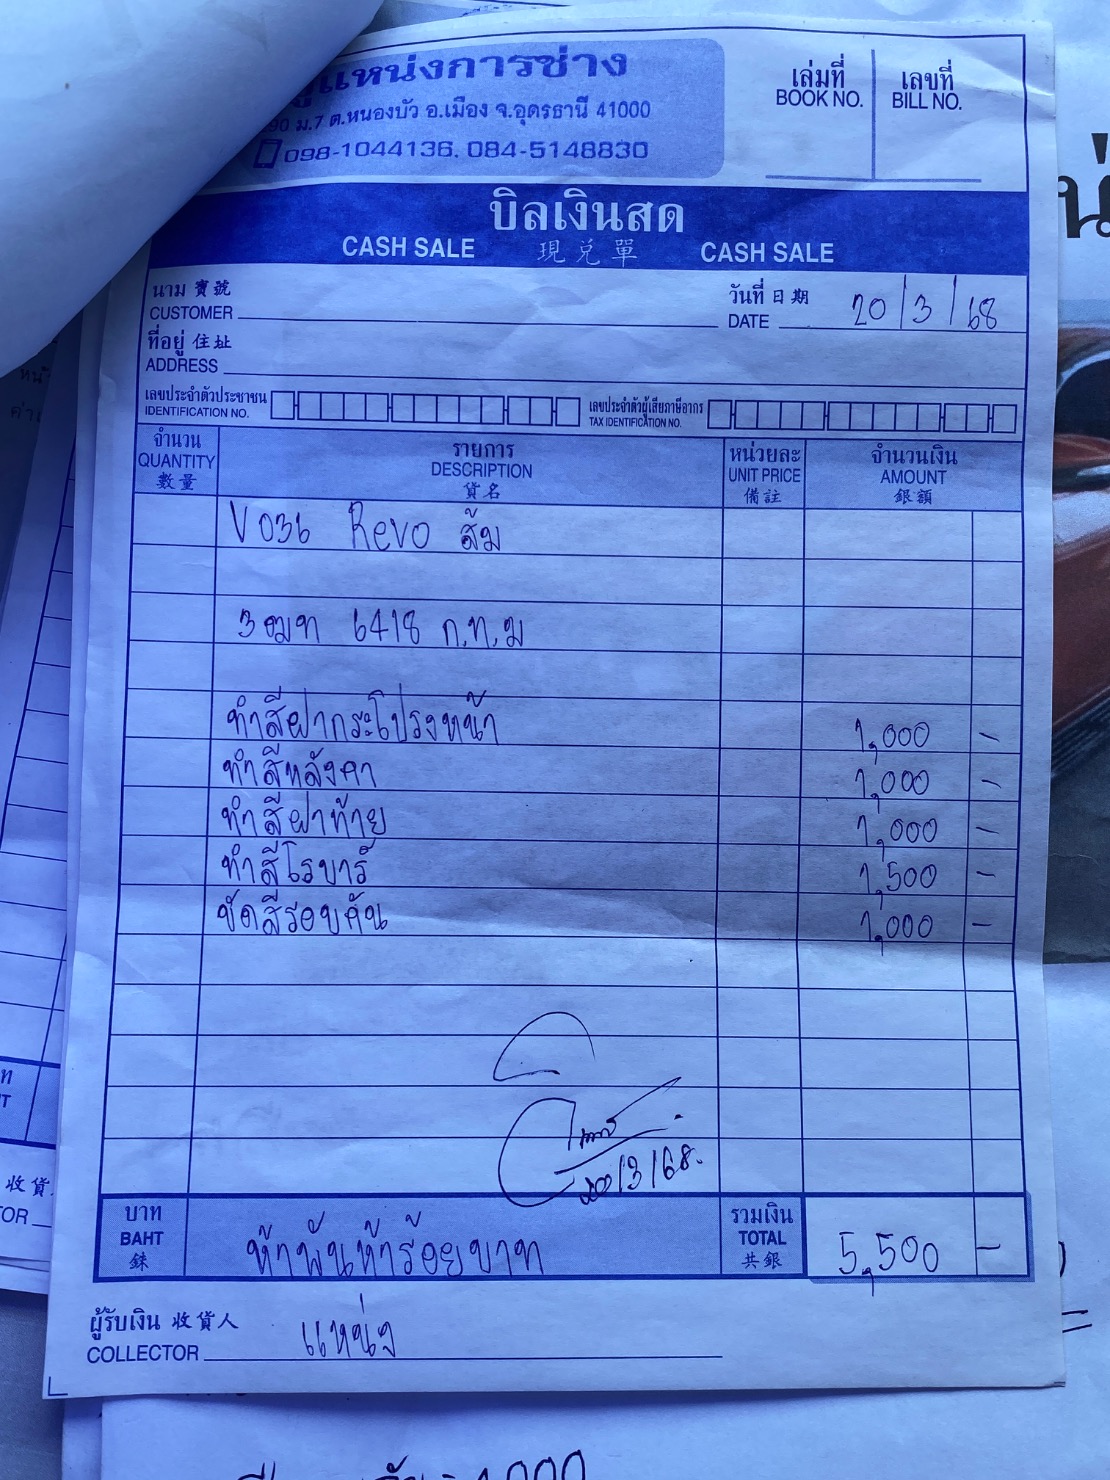 แหน่งการช่าง
90 ม.7 ต.หนองบัว อ.เมือง จ.อุดรธานี 41000
098-1044136, 084-5148830
เล่มที่ เลขที่
BOOK NO. BILL NO.
บิลเงินสด
CASH SALE 現兑單 CASH SALE
นาม 寶號 วันที่ 日期
CUSTOMER DATE 20/3/68
ที่อยู่ 住址
ADDRESS
เลขประจำตัวประชาชน เลขประจำตัวผู้เสียภาษีอากร
IDENTIFICATION NO. TAX IDENTIFICATION NO.
จำนวน รายการ หน่วยละ จำนวนเงิน
QUANTITY DESCRIPTION UNIT PRICE AMOUNT
數量 貨名 備註 銀額
V036 Revo ส้ม
3ฒฑ 6418 ก.ท.ม
ทำสีฝากระโปรงหน้า 1,000 -
ทำสีหลังคา 1,000 -
ทำสีฝาท้าย 1,000 -
ทำสีโรบาร์ 1,500 -
ขัดสีรอบคัน 1,000 -
20/3/68.
บาท รวมเงิน
BAHT ห้าพันห้าร้อยบาท TOTAL 5,500 -
銖 共銀
ผู้รับเงิน 收貨人
COLLECTOR แหน่ง